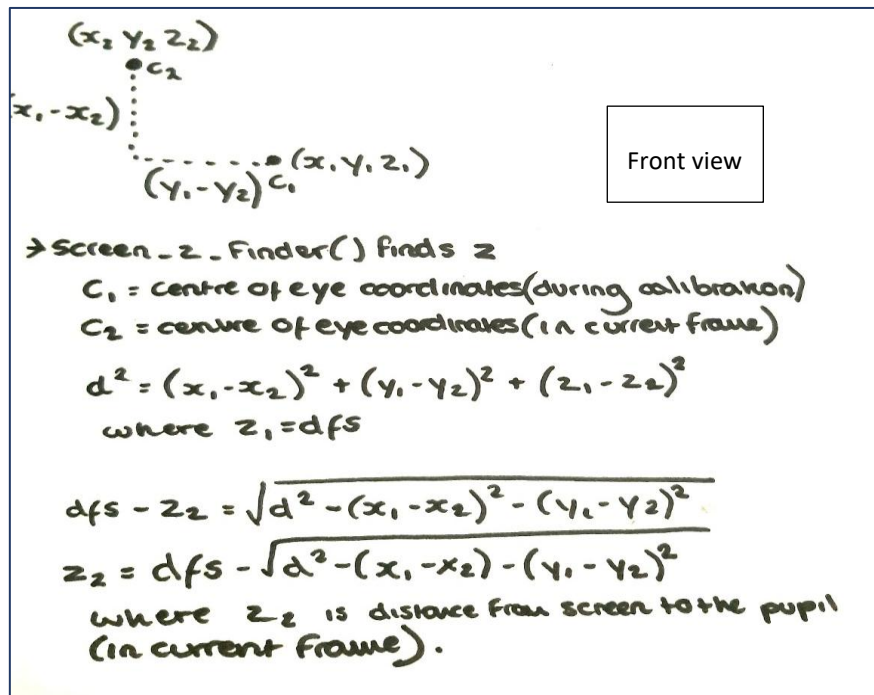 (x₂ y₂ z₂)
C₂
(x₁-x₂)
(x₁ y₁ z₁)
(y₁-y₂) C₁
Front view
→ Screen_z_Finder() finds z
C₁ = centre of eye coordinates (during calibration)
C₂ = centre of eye coordinates (in current frame)
d² = (x₁-x₂)² + (y₁-y₂)² + (z₁-z₂)²
where z₁ = dfs
dfs - z₂ = √d² - (x₁-x₂)² - (y₁-y₂)²
z₂ = dfs - √d² - (x₁-x₂) - (y₁-y₂)²
where z₂ is distance from screen to the pupil
(in current frame).